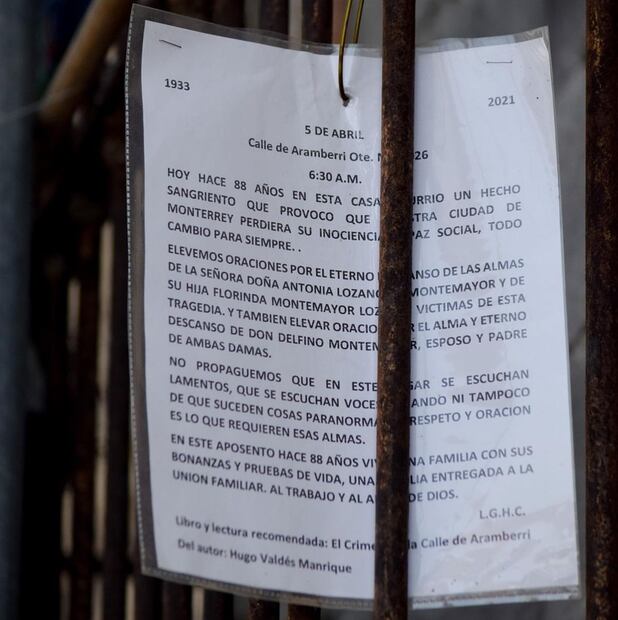 1933
2021
5 DE ABRIL
Calle de Aramberri Ote.
6:30 A.M.
HOY HACE 88 AÑOS EN ESTA CASA OCURRIO UN HECHO
SANGRIENTO QUE PROVOCO QUE NUESTRA CIUDAD DE
MONTERREY PERDIERA SU INOCIENCIA Y PAZ SOCIAL, TODO
CAMBIO PARA SIEMPRE. .
ELEVEMOS ORACIONES POR EL ETERNO DESCANSO DE LAS ALMAS
DE LA SEÑORA DOÑA ANTONIA LOZANO DE MONTEMAYOR Y DE
SU HIJA FLORINDA MONTEMAYOR LOZANO VICTIMAS DE ESTA
TRAGEDIA. Y TAMBIEN ELEVAR ORACIONES POR EL ALMA Y ETERNO
DESCANSO DE DON DELFINO MONTEMAYOR, ESPOSO Y PADRE
DE AMBAS DAMAS.
NO PROPAGUEMOS QUE EN ESTE LUGAR SE ESCUCHAN
LAMENTOS, QUE SE ESCUCHAN VOCES NI TAMPOCO
DE QUE SUCEDEN COSAS PARANORMALES RESPETO Y ORACION
ES LO QUE REQUIEREN ESAS ALMAS.
EN ESTE APOSENTO HACE 88 AÑOS VIVIA UNA FAMILIA CON SUS
BONANZAS Y PRUEBAS DE VIDA, UNA FAMILIA ENTREGADA A LA
UNION FAMILIAR. AL TRABAJO Y AL AMOR DE DIOS.
L.G.H.C.
Libro y lectura recomendada: El Crimen de la Calle de Aramberri
Del autor: Hugo Valdés Manrique